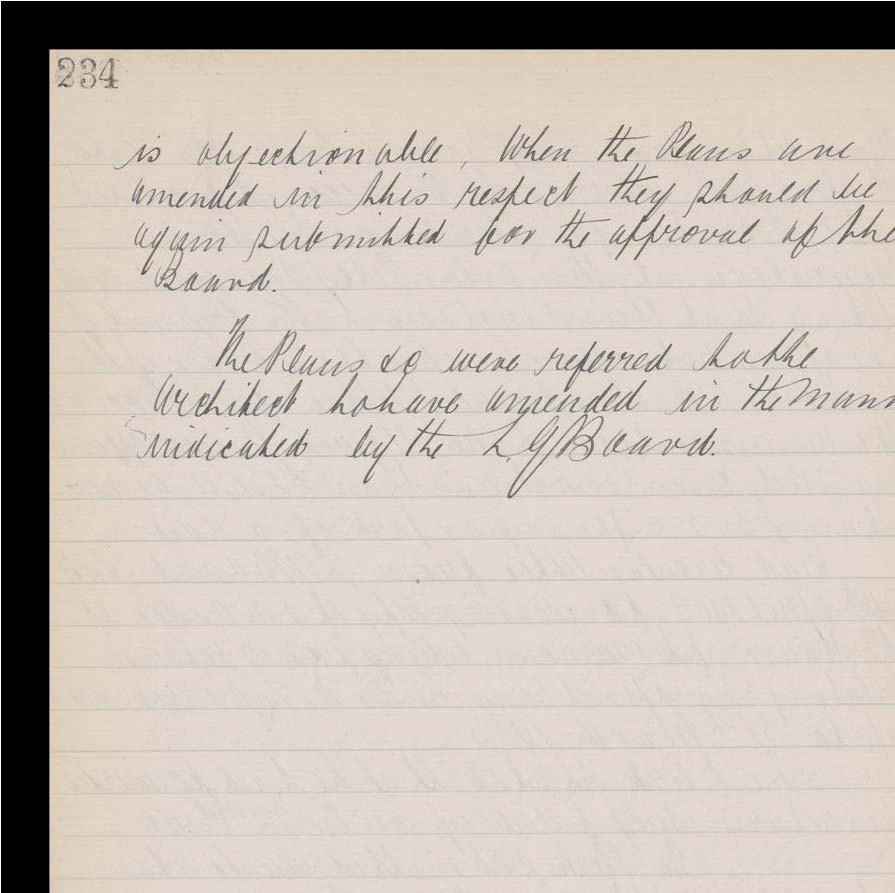 234
is objectionable, When the Plans are
amended in this respect they should be
again submitted for the approval of the
Board.
The Plans &c were referred to the
Architect to have amended in the Mann
indicated by the L.G Board.